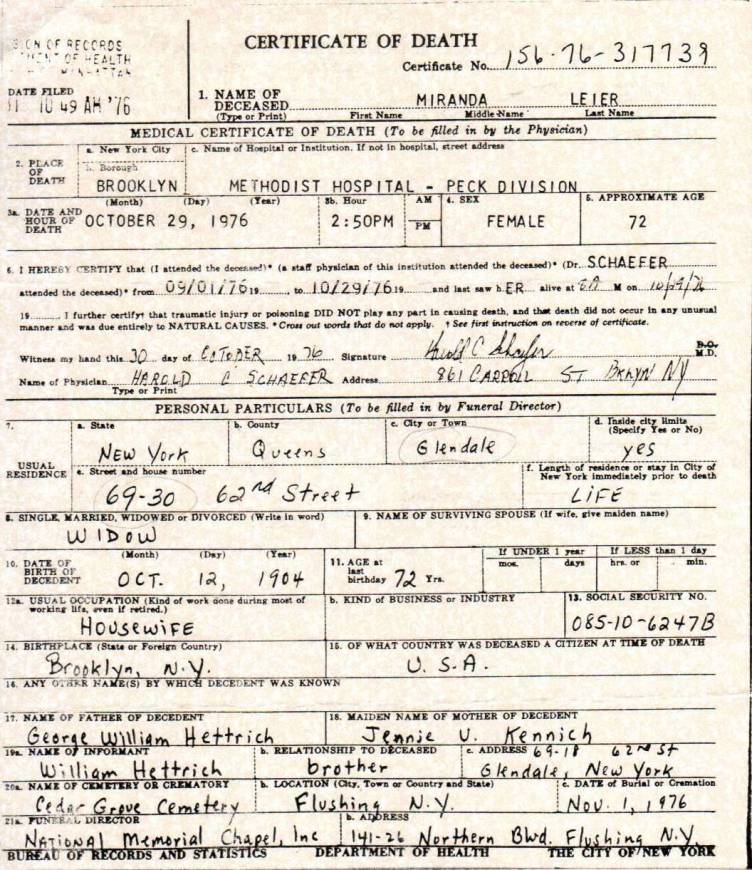 CERTIFICATE OF DEATH
ON OF RECORDS
OF HEALTH
MANHATTAN
Certificate No. 156-76-317739
DATE FILED
10 49 AM '76
1. NAME OF DECEASED (Type or Print) MIRANDA LEIER
First Name Middle Name Last Name
MEDICAL CERTIFICATE OF DEATH (To be filled in by the Physician)
2. PLACE OF DEATH
a. New York City
c. Name of Hospital or Institution. If not in hospital, street address
b. Borough
BROOKLYN METHODIST HOSPITAL - PECK DIVISION
3a. DATE AND HOUR OF DEATH
(Month) (Day) (Year)
OCTOBER 29, 1976
3b. Hour
2:50PM
AM
PM
4. SEX
FEMALE
5. APPROXIMATE AGE
72
6. I HEREBY CERTIFY that (I attended the deceased)* (a staff physician of this institution attended the deceased)* (Dr. SCHAEFER
attended the deceased)* from 09/01/76 19 , to 10/29/76 19 and last saw h ER alive at M on 10/29/76
19 I further certify† that traumatic injury or poisoning DID NOT play any part in causing death, and that death did not occur in any unusual
manner and was due entirely to NATURAL CAUSES. *Cross out words that do not apply. † See first instruction on reverse of certificate.
Witness my hand this 30 day of OCTOBER 19 76 Signature Harold C Schaefer D.O. M.D.
Name of Physician HAROLD C SCHAEFER Address 861 CARROLL ST BKLYN NY
Type or Print
PERSONAL PARTICULARS (To be filled in by Funeral Director)
7. USUAL RESIDENCE
a. State
NEW YORK
b. County
Queens
c. City or Town
Glendale
d. Inside city limits (Specify Yes or No)
yes
e. Street and house number
69-30 62nd Street
f. Length of residence or stay in City of New York immediately prior to death
LIFE
8. SINGLE, MARRIED, WIDOWED or DIVORCED (Write in word)
WIDOW
9. NAME OF SURVIVING SPOUSE (If wife, give maiden name)
10. DATE OF BIRTH OF DECEDENT
(Month) (Day) (Year)
OCT. 12, 1904
11. AGE at last birthday 72 Yrs.
If UNDER 1 year
mos. days
If LESS than 1 day
hrs. or min.
12a. USUAL OCCUPATION (Kind of work done during most of working life, even if retired.)
HOUSEWIFE
b. KIND OF BUSINESS or INDUSTRY
13. SOCIAL SECURITY NO.
085-10-6247B
14. BIRTHPLACE (State or Foreign Country)
Brooklyn, N.Y.
15. OF WHAT COUNTRY WAS DECEASED A CITIZEN AT TIME OF DEATH
U.S.A.
16. ANY OTHER NAME(S) BY WHICH DECEDENT WAS KNOWN
17. NAME OF FATHER OF DECEDENT
George William Hettrich
18. MAIDEN NAME OF MOTHER OF DECEDENT
Jennie U. Kennich
19a. NAME OF INFORMANT
William Hettrich
b. RELATIONSHIP TO DECEASED
brother
c. ADDRESS 69-18 62nd St
Glendale, New York
20a. NAME OF CEMETERY OR CREMATORY
Cedar Grove Cemetery
b. LOCATION (City, Town or Country and State)
Flushing N.Y.
c. DATE of Burial or Cremation
Nov. 1, 1976
21a. FUNERAL DIRECTOR
NATIONAL Memorial Chapel, Inc
b. ADDRESS
141-26 Northern Blvd. Flushing N.Y.
BUREAU OF RECORDS AND STATISTICS DEPARTMENT OF HEALTH THE CITY OF NEW YORK